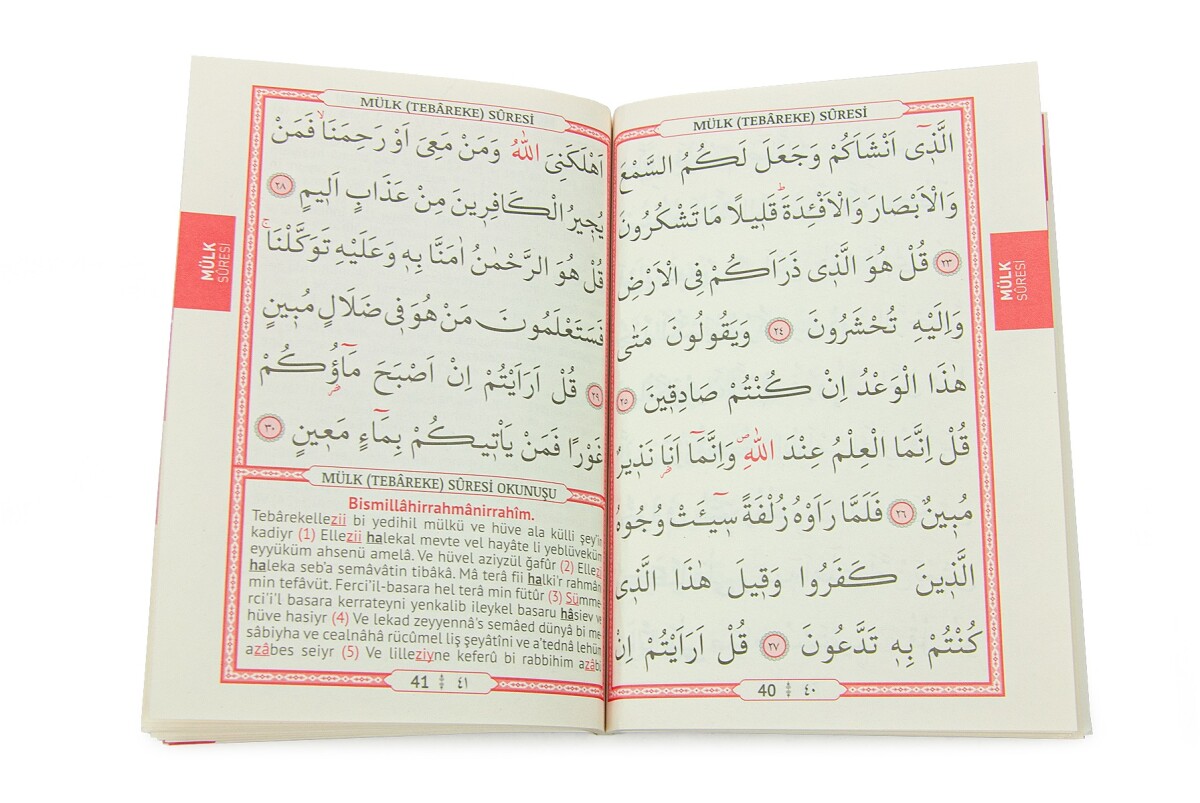 MÜLK (TEBÂREKE) SÛRESİ
الَّذٖٓى اَنْشَاَكُمْ وَجَعَلَ لَكُمُ السَّمْعَ
وَالْاَبْصَارَ وَالْاَفْـِٔدَةَؕ قَلٖيلًا مَا تَشْكُرُونَ
﴿٢٣﴾ قُلْ هُوَ الَّذٖى ذَرَاَكُمْ فِى الْاَرْضِ
وَاِلَيْهِ تُحْشَرُونَ ﴿٢٤﴾ وَيَقُولُونَ مَتٰى
هٰذَا الْوَعْدُ اِنْ كُنْتُمْ صَادِقٖينَ ﴿٢٥﴾
قُلْ اِنَّمَا الْعِلْمُ عِنْدَ اللّٰهِࣕ وَاِنَّمَٓا اَنَا نَذٖيرٌ
مُبٖينٌ ﴿٢٦﴾ فَلَمَّا رَاَوْهُ زُلْفَةً سٖٓيـَٔتْ وُجُوهُ
الَّذٖينَ كَفَرُوا وَقٖيلَ هٰذَا الَّذٖى
كُنْتُمْ بِهٖ تَدَّعُونَ ﴿٢٧﴾ قُلْ اَرَاَيْتُمْ اِنْ
40 ٤٠
MÜLK SÛRESİ
MÜLK (TEBÂREKE) SÛRESİ
اَهْلَكَنِىَ اللّٰهُ وَمَنْ مَعِىَ اَوْ رَحِمَنَاۙ فَمَنْ
يُجٖيرُ الْكَافِرٖينَ مِنْ عَذَابٍ اَلٖيمٍ ﴿٢٨﴾
قُلْ هُوَ الرَّحْمٰنُ اٰمَنَّا بِهٖ وَعَلَيْهِ تَوَكَّلْنَاۚ
فَسَتَعْلَمُونَ مَنْ هُوَ فٖى ضَلَالٍ مُبٖينٍ
﴿٢٩﴾ قُلْ اَرَاَيْتُمْ اِنْ اَصْبَحَ مَٓاؤُكُمْ
غَوْرًا فَمَنْ يَاْتٖيكُمْ بِمَٓاءٍ مَعٖينٍ ﴿٣٠﴾
MÜLK (TEBÂREKE) SÛRESİ OKUNUŞU
Bismillâhirrahmânirrahîm.
Tebârekellezii bi yedihil mülkü ve hüve ala külli şey'in
kadiyr (1) Ellezii halekal mevte vel hayâte li yeblüveküm
eyyüküm ahsenü amelâ. Ve hüvel aziyzül ğafûr (2) Ellez
haleka seb'a semâvâtin tibâkâ. Mâ terâ fii halki'r rahmân
min tefâvüt. Ferci'il-basara hel terâ min fütûr (3) Sümme
rci'i'l basara kerrateyni yenkalib ileykel basaru hâsiev ve
hüve hasiyr (4) Ve lekad zeyyennâ's semâed dünyâ bi me
sâbiyha ve cealnâhâ rücûmel liş şeyâtîni ve a'tednâ lehüm
azâbes seiyr (5) Ve lilleziyne keferû bi rabbihim azâbi
41 ٤١
MÜLK SÛRESİ